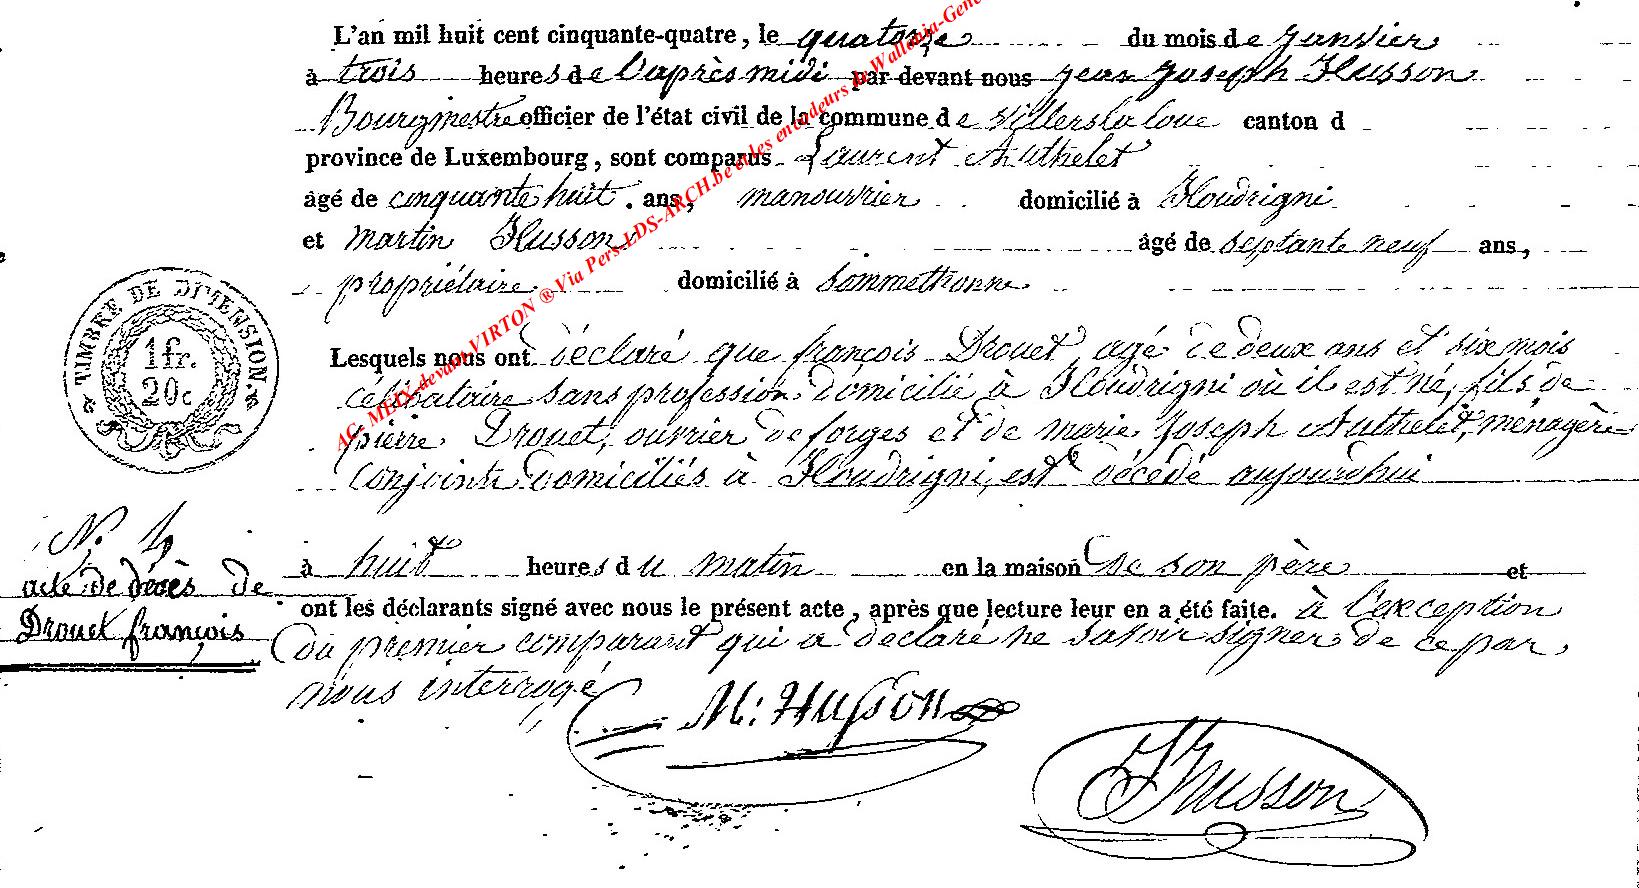 L'an mil huit cent cinquante-quatre, le quatorze du mois de janvier
à trois heures de l'après midi par devant nous jean joseph Husson
Bourgmestre officier de l'état civil de la commune de Villerslaloue canton d
province de Luxembourg, sont comparus Laurent Authelet
âgé de cinquante huit ans, manouvrier domicilié à Houdrigni
et martin Husson âgé de septante neuf ans,
propriétaire domicilié à Sommethonne
Lesquels nous ont déclaré que françois Drouet agé de deux ans et six mois
célibataire sans profession domicilié à Houdrigni où il est né, fils de
pierre Drouet, ouvrier de forges et de marie Joseph Authelet, ménagère
conjoints domiciliés à Houdrigni, est décédé aujourdhui
à huit heures du matin en la maison de son père et
ont les déclarants signé avec nous le présent acte, après que lecture leur en a été faite. à l'exception
du premier comparant qui a déclaré ne savoir signer de ce par
nous interrogé
M: Husson
JHusson
TIMBRE DE DIMENSION.
1 fr.
20 c
N.
acte de décès de
Drouet françois
AC. MEIX-devant-VIRTON ® Via Pers-LDS-ARCH.be et les encodeurs de Wallonia-Gene